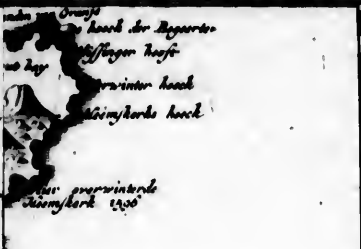 van Oranje
hoeck der Begeerte
Vliſſinger hooft
hay
erwinter hoeck
Heemſkerks hoeck
Hier overwinterde
Heemſkerk 1596